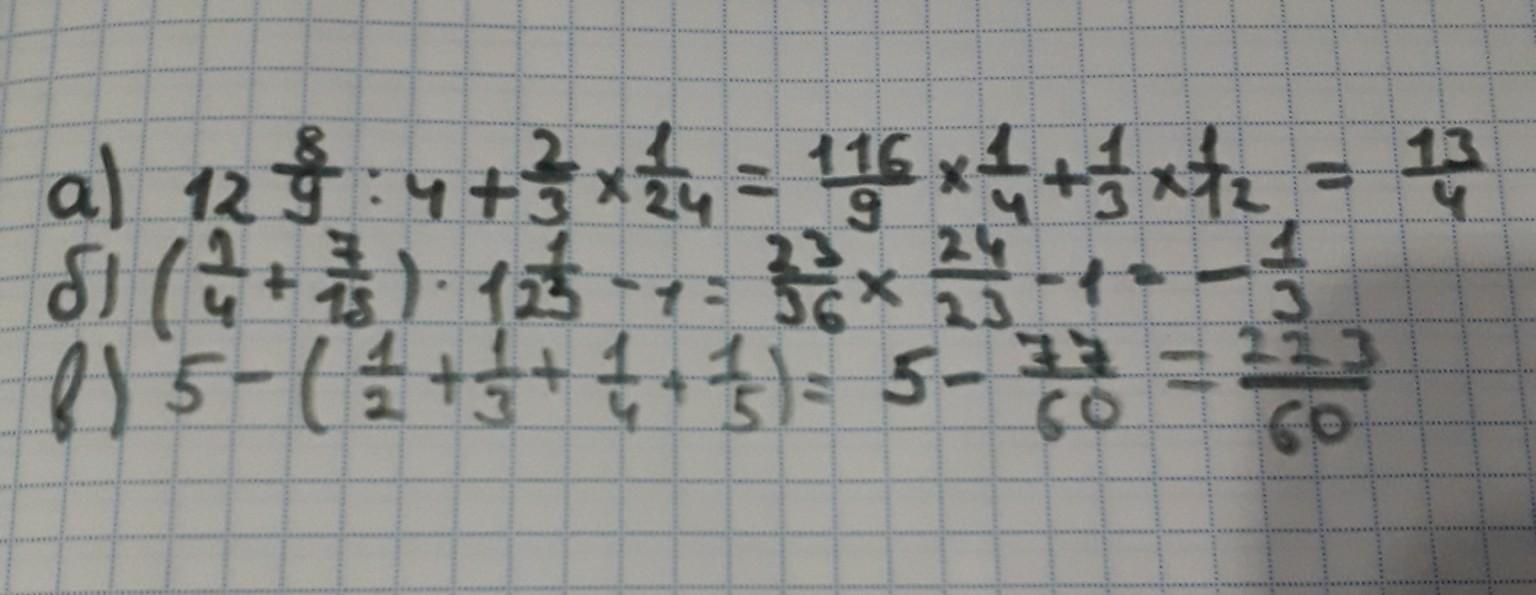 а) 12 8/9 : 4 + 2/3 × 1/24 = 116/9 × 1/4 + 1/3 × 1/12 = 13/4
б) (1/4 + 7/18) · 1 1/23 - 1 = 23/36 × 24/23 - 1 = - 1/3
в) 5 - (1/2 + 1/3 + 1/4 + 1/5) = 5 - 77/60 = 223/60